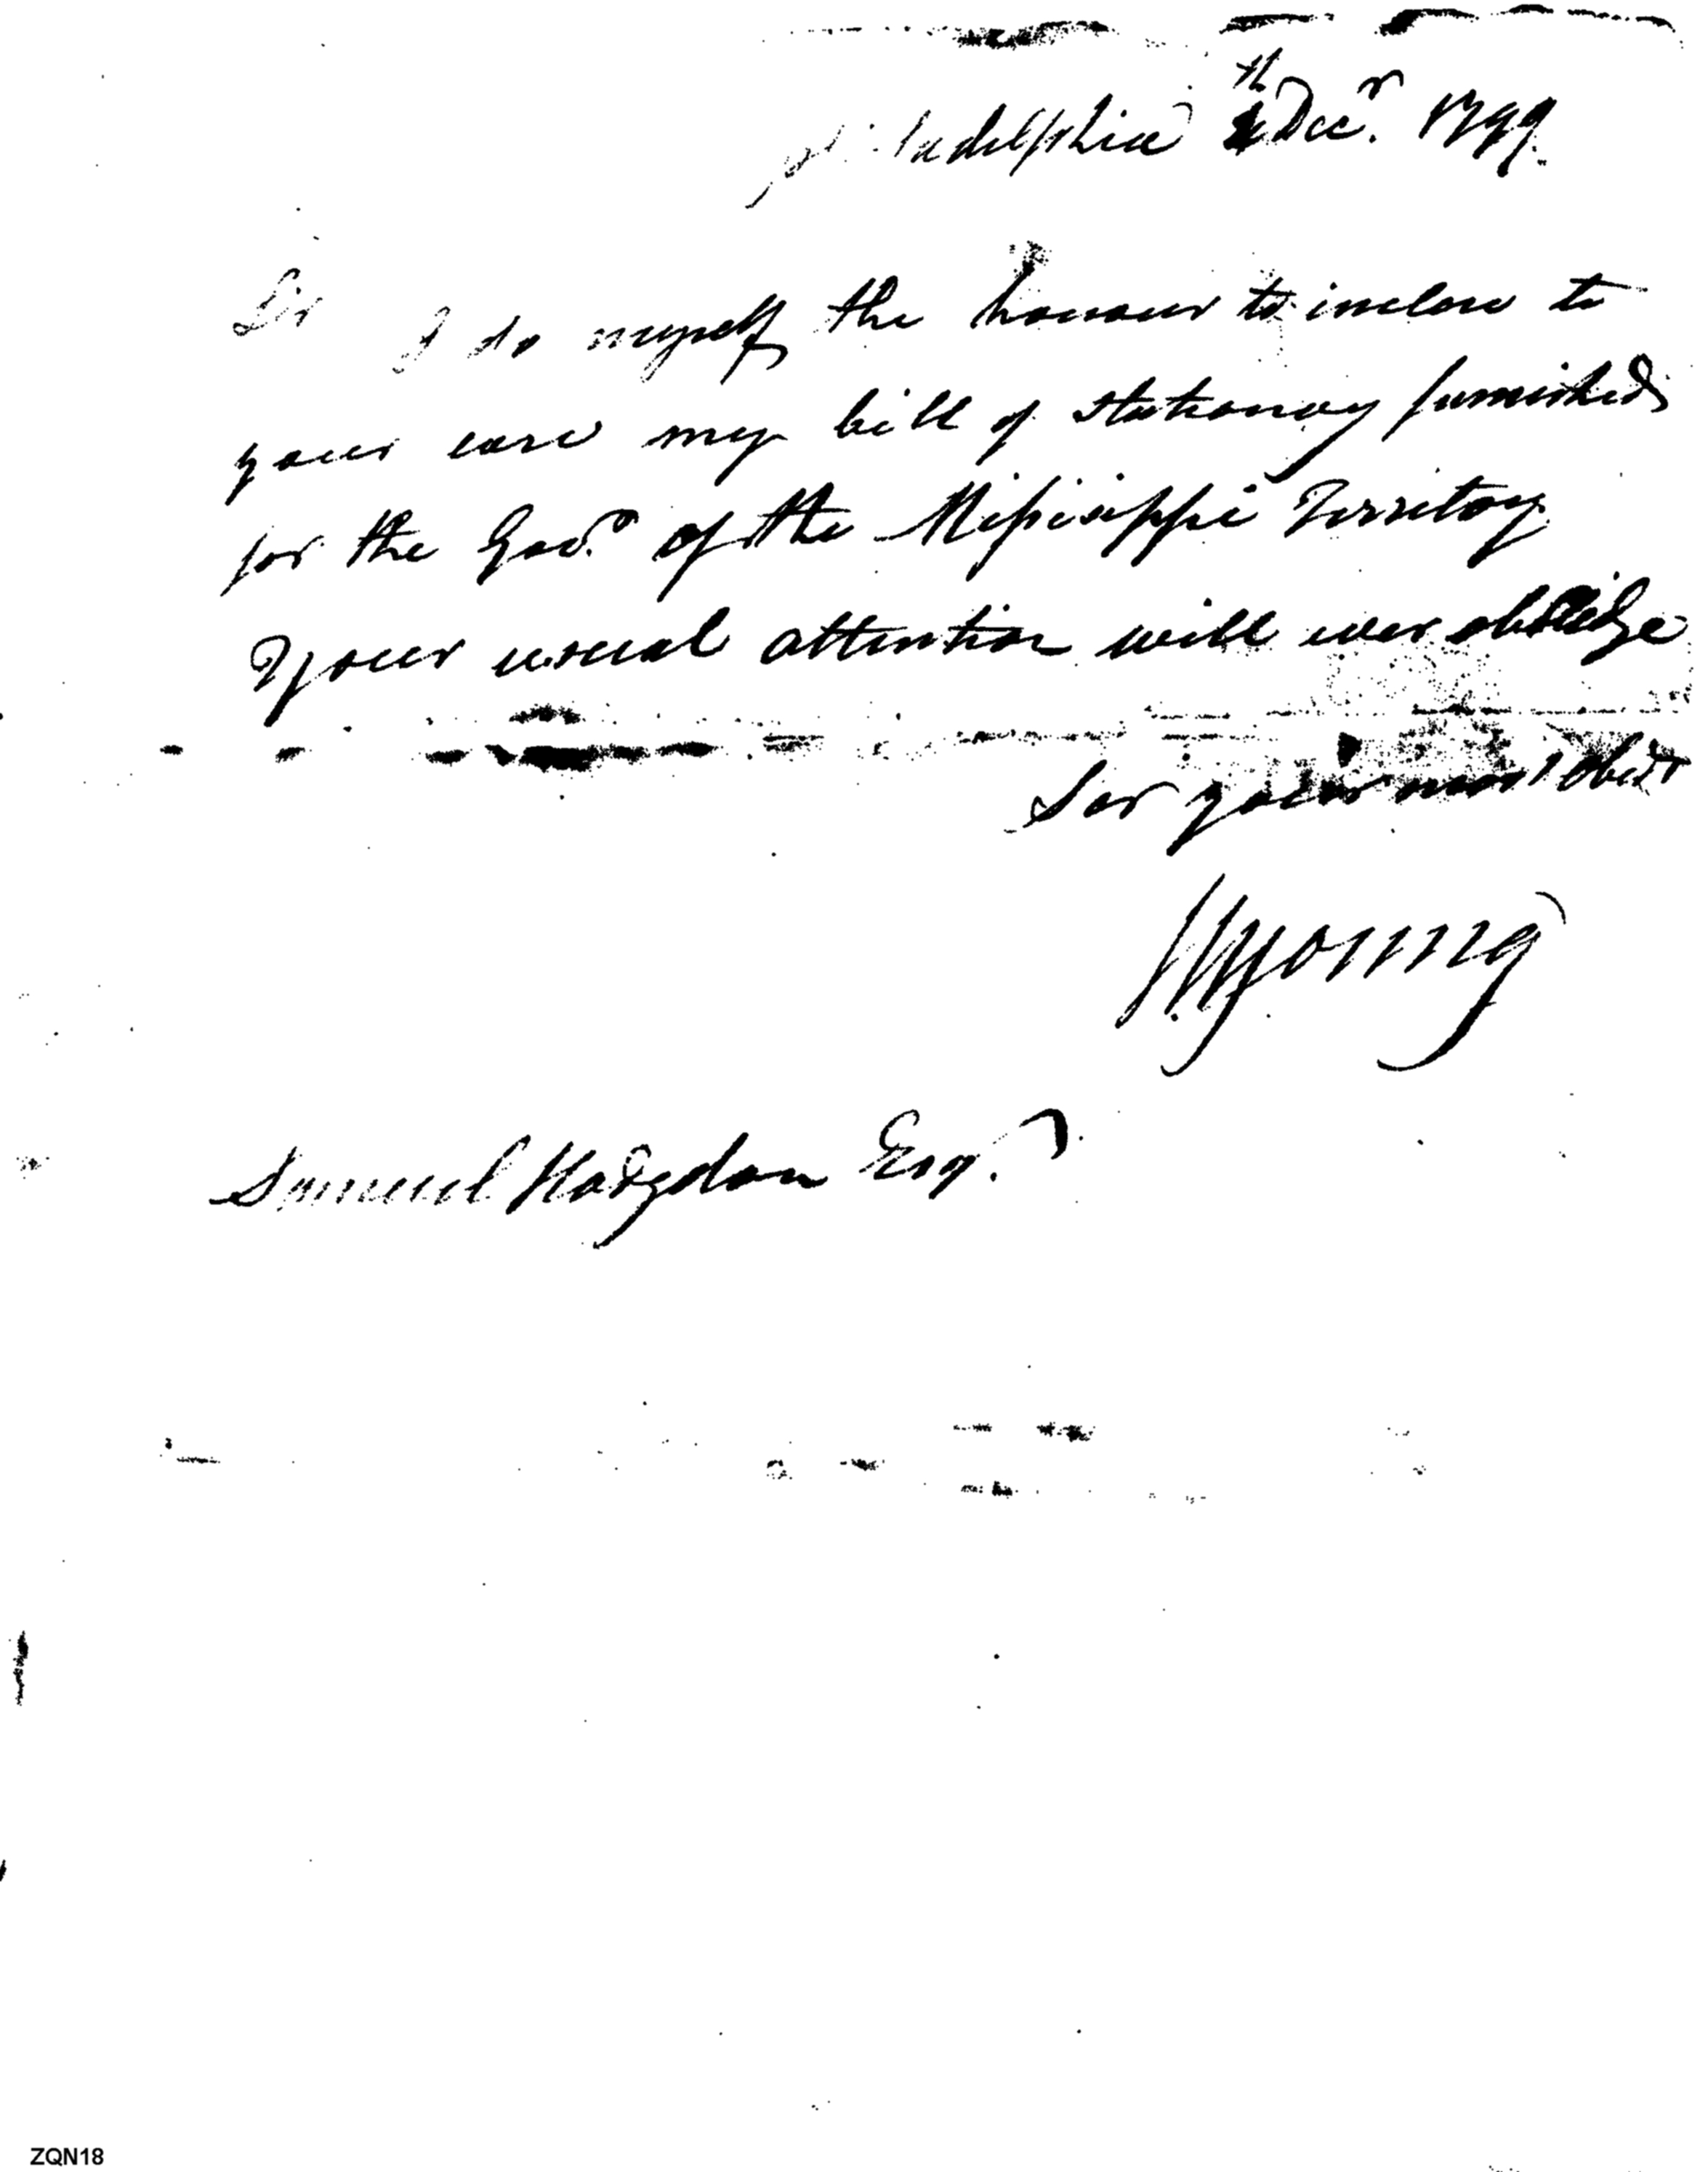 Philadelphia 4th Decr. 1799.
Sir
I do myself the honour to inclose to
your care my bill of stationary furnished
for the Govr. of the Missisippi Territory
Your usual attention will ever oblidge
Sir your most obedt
W. Young
Samuel Hodgdon Esqr.
ZQN18